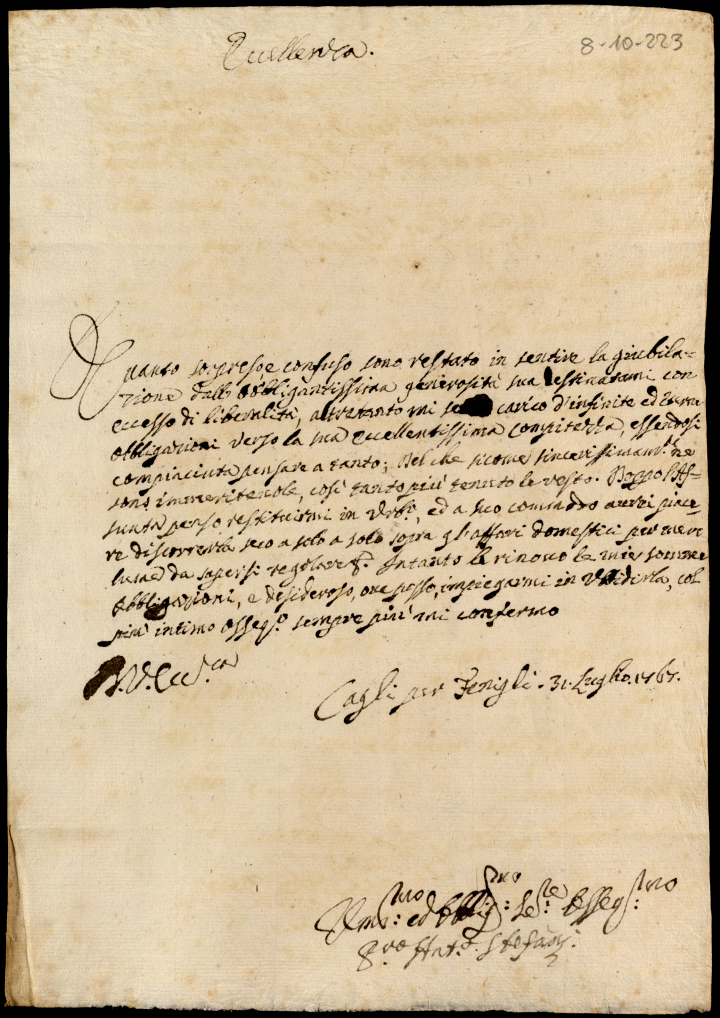 Eccellenza.
8-10-223
Quanto sorpreso, e confuso sono restato in sentire la giubila=
zione dall' obbligantissima generosità sua destinatami con
eccesso di liberalità, altretanto mi sento carico d'infinite ed eterne
obbligazioni verso la sua Eccellentissima Compitezza, essendosi
compiaciuta pensare a tanto; Nel che siccome sincerissimam.te ne
sono immeritevole, così tanto più tenuto le resto. Doppo l'As=
sunta penso restituirmi in Urb.o, ed a suo comando averei piace=
re discorrerla seco a solo a solo sopra gl'affari domestici per
da sapersi regolare. Intanto le rinovo le mie somme
obbligazioni, e desideroso, ove posso, impiegarmi in ubidirla, col
più intimo osseq.o sempre più mi confermo
D. V. Ecc.za
Cagli per Fenigli. 31. Luglio. 1767.
Um.mo: ed Obblig.mo: Se.re Osseq.mo
Ant.o Stefani: